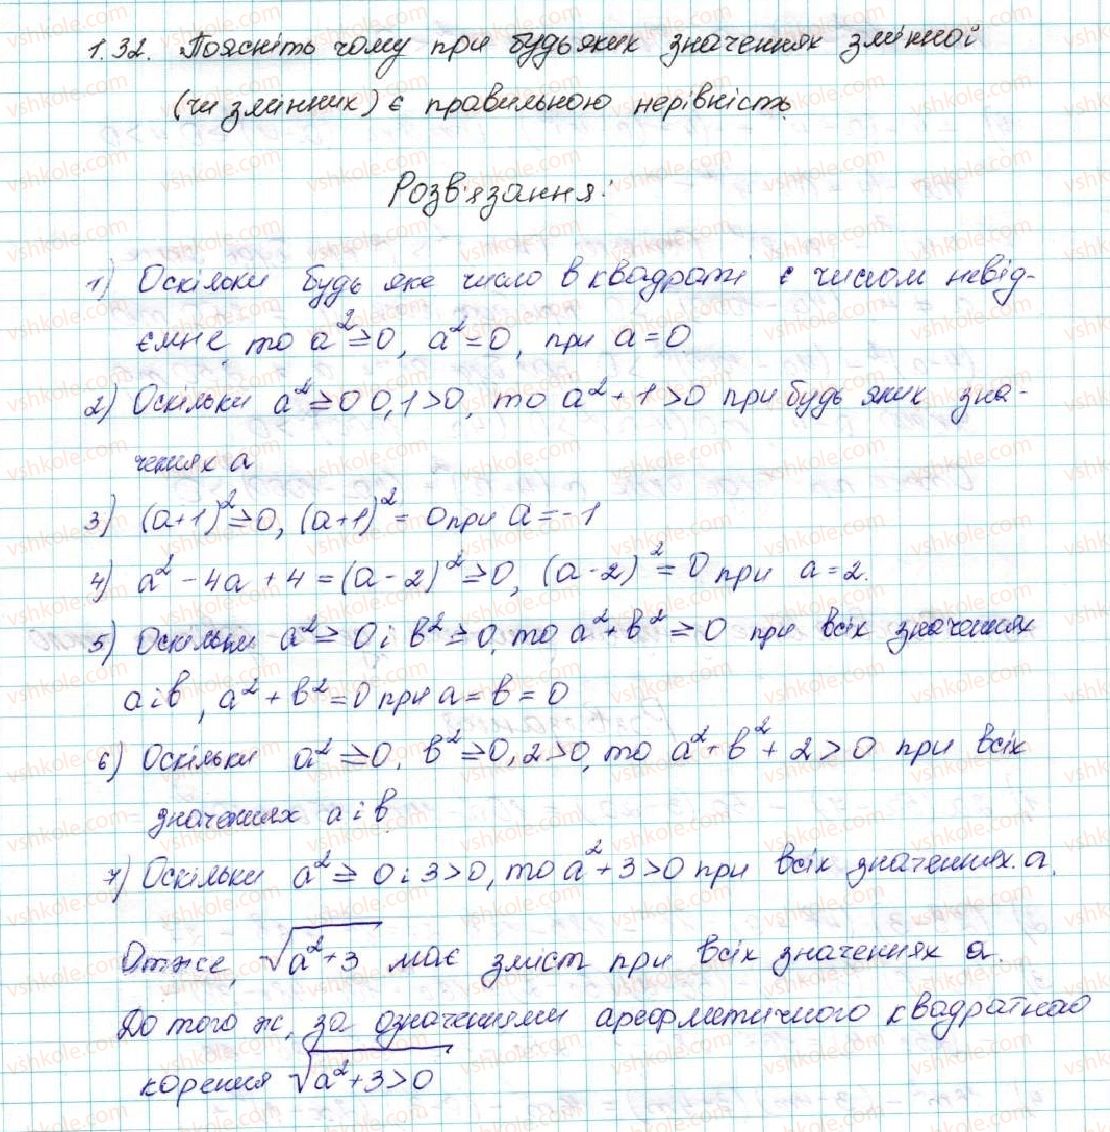 1.32. Поясніть чому при будьяких значеннях змінної
(чи змінних) є правильною нерівність.
Розв'язання:
1) Оскільки будь яке число в квадраті є числом невід-
ємне, то a² ≥ 0, a² = 0, при a = 0
2) Оскільки a² ≥ 0 0,1 > 0, то a² + 1 > 0 при будь яких зна-
ченнях a
3) (a+1)² ≥ 0, (a+1)² = 0 при a = -1
4) a² - 4a + 4 = (a - 2)² ≥ 0, (a - 2)² = 0 при a = 2.
5) Оскільки a² ≥ 0 і b² ≥ 0, то a² + b² ≥ 0 при всіх значеннях
a і b, a² + b² = 0 при a = b = 0
6) Оскільки a² ≥ 0, b² ≥ 0, 2 > 0, то a² + b² + 2 > 0 при всіх
значеннях a і b
7) Оскільки a² ≥ 0 і 3 > 0, то a² + 3 > 0 при всіх значеннях a.
Отже, √(a² + 3) має зміст при всіх значеннях a.
До того ж, за означеннями арефметичного квадратного
кореня √(a² + 3 > 0)